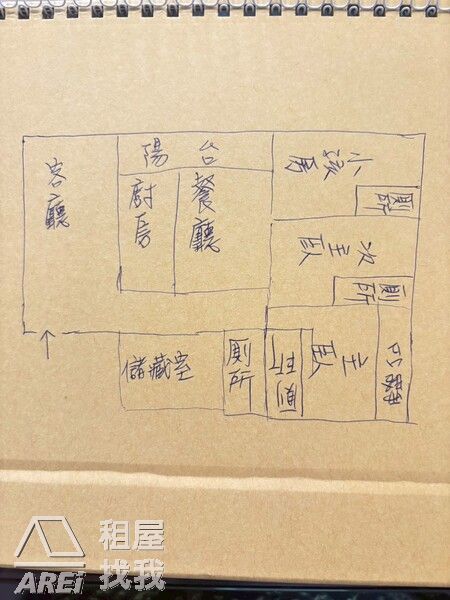 陽台
客廳
廚房
餐廳
小孩房
廁所
次主臥
廁所
主臥
廁所
廁所
儲藏室
租屋
找我
AREi